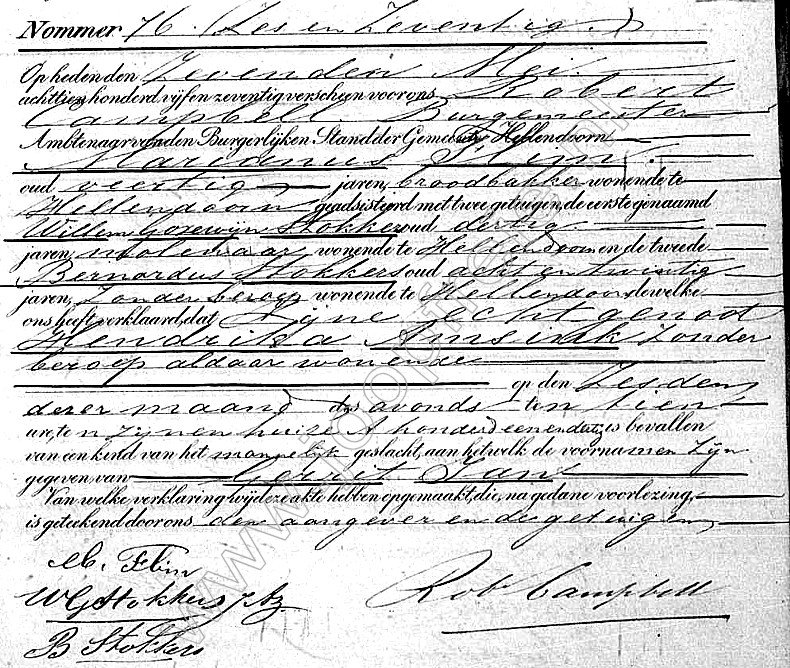 Nommer 76. Zes en Zeventig.
Op heden den Zevenden Mei
achttien honderd vijf en zeventig verscheen voor ons Robert
Campbell Burgemeester
Ambtenaar van den Burgerlijken Stand der Gemeente Hellendoorn
Marianus Flim
oud veertig jaren, broodbakker wonende te
Hellendoorn geadsisteerd met twee getuigen, de eerste genaamd
Willem Gozewijn Stokkers oud dertig
jaren, molenaar wonende te Hellendoorn en de tweede
Bernardus Stokkers oud acht en twintig
jaren, Zonder beroep wonende te Hellendoorn, dewelke
ons heeft verklaard, dat Zijne echtgenoot
Hendrika Amsink Zonder
beroep aldaar wonende
op den Zesden
dezer maand des avonds ten tien
ure, te n zijnen huize 1 honderd een en dertig is bevallen
van een kind van het mannelijk geslacht, aan hetwelk de voornamen Zijn
gegeven van Gerrit Jan
Van welke verklaring wij deze akte hebben opgemaakt, die, na gedane voorlezing,
is geteekend door ons den aangever en de getuigen
M. Flim
WG Stokkers Az Rob Campbell
B Stokkers